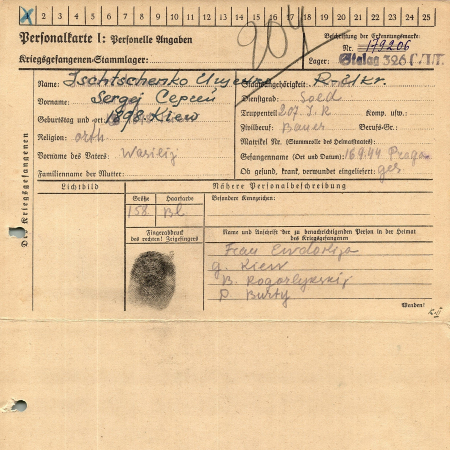 X 2 3 4 5 6 7 8 9 10 11 12 13 14 15 16 17 18 19 20 21 22 23 24 25
204
Personalkarte I: Personelle Angaben
Beschriftung der Erkennungsmarke
Nr. 179206
Kriegsgefangenen-Stammlager:
Lager: Stalag 326
Name: Ischtschenko
Staatsangehörigkeit: R-Ukr.
Vorname: Sergej Сергей
Dienstgrad: Sold
Truppenteil: 207 I.R Komp. usw.:
Geburtstag und 1898 Kiew
Zivilberuf: Bauer Berufs-Gr.:
Religion: orth
Matrikel Nr. (Stammrolle des Heimatstaates):
Vorname des Vaters: Wasilij
Gefangennahme (Ort und Datum): 16.9.44 Praga
Familienname der Mutter:
Ob gesund, krank, verwundet eingeliefert: ges
Des Kriegsgefangenen
Lichtbild
Nähere Personalbeschreibung
Größe Haarfarbe
Besondere Kennzeichen:
158 Bl
Fingerabdruck
des rechten! Zeigefingers
Name und Anschrift der zu benachrichtigenden Person in der Heimat
des Kriegsgefangenen
Frau Ewdokija
g. Kiew
B.
D. Burty
Wenden!